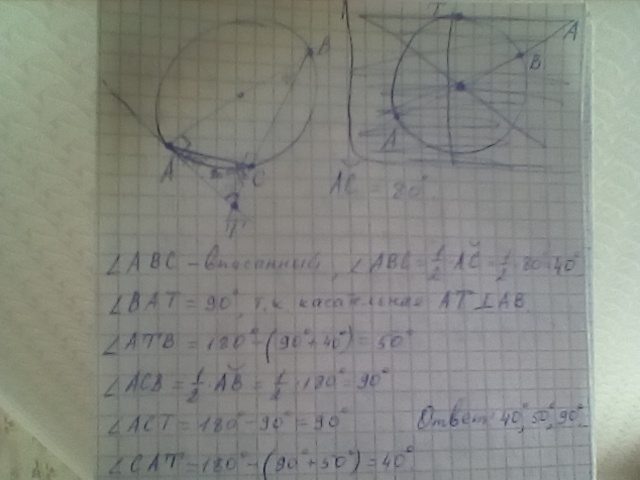 B
A
C
T
T
A
B
A
AC = 80°
∠ABC - вписанный, ∠ABC = 1/2 AC = 1/2 · 80 = 40°
∠BAT = 90°, т.к касательная AT⊥AB
∠ATB = 180° - (90° + 40°) = 50°
∠ACB = 1/2 AB = 1/2 · 180° = 90°
∠ACT = 180° - 90° = 90°
Ответ: 40°, 50°, 90°.
∠CAT = 180° - (90° + 50°) = 40°